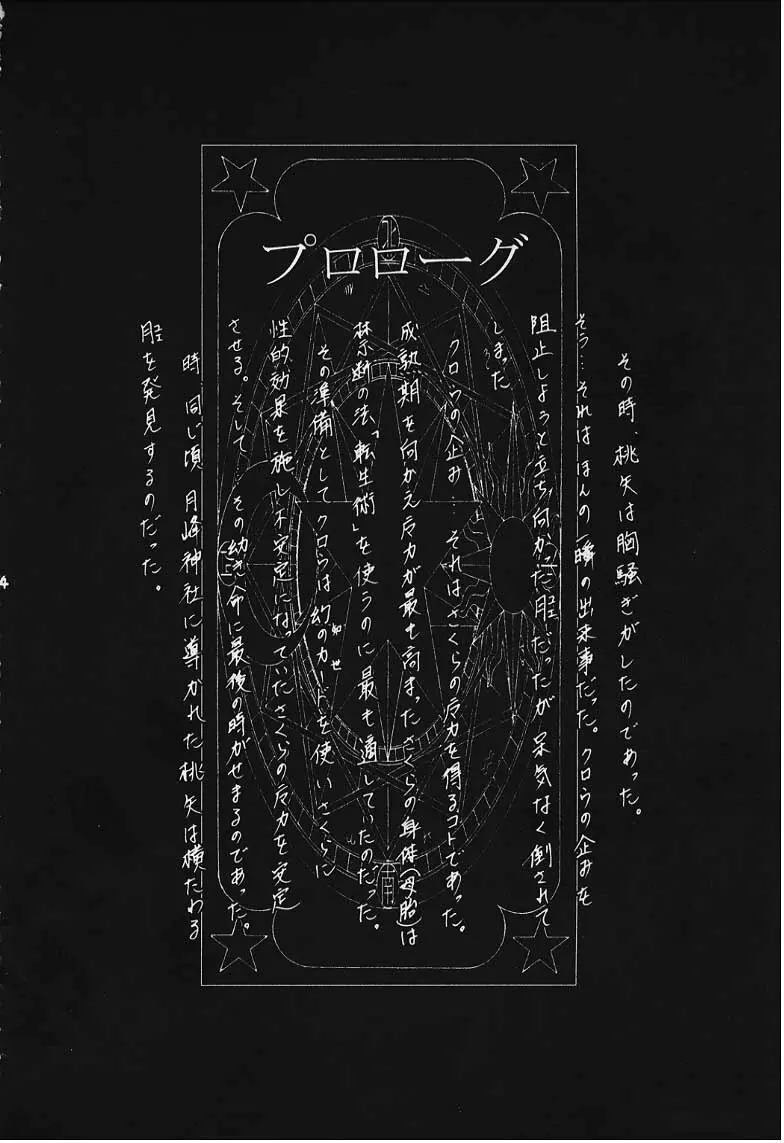 プロローグ
その時、桃矢は胸騒ぎがしたのであった。
そう…それはほんの一瞬の出来事だった。クロウの企みを
阻止しようと立ち向かっただったが 呆気なく倒されて
しまった
クロウの企み…それはさくらの魔力を得るコトであった。
成熟期を向かえ魔力が最も高まったさくらの身体(母胎)は
禁断の法「転生術」を使うのに最も適していたのだった。
その準備としてクロウはのカードを使い さくらに
性的効果を施し不安定になっていたさくらの魔力を安定
させる。そして その幼き命に最後の時がせまるのであった。
時 同じ頃 月峰神社に導かれた桃矢は横たわる
を発見するのだった。
4